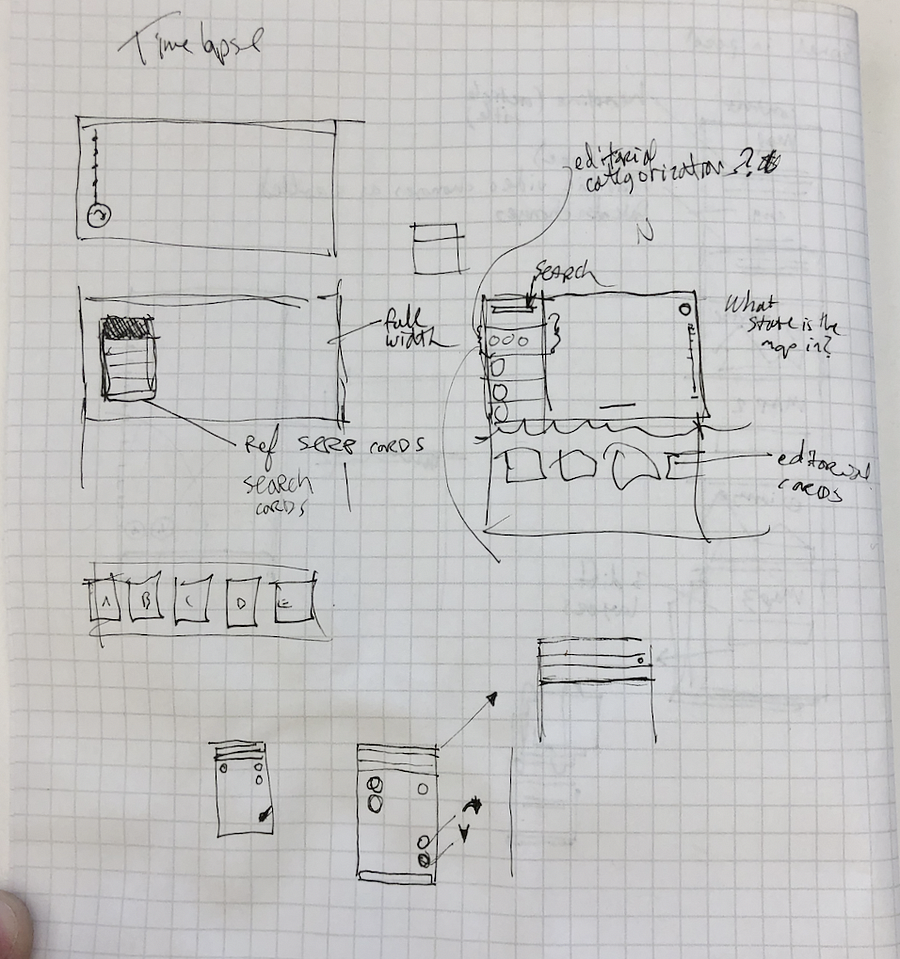 Timelapse
editorial
categorization?
N
SEARCH
What
state is the
map in?
full
width
Ref SERP cards
SEARCH
cards
editorial
cards
A B C D E